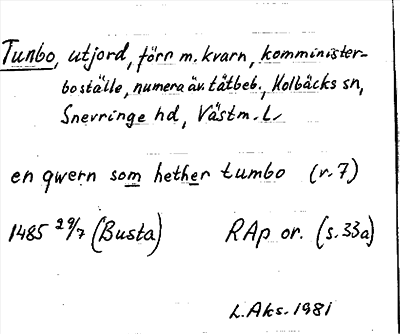 Tunbo, utjord, förn m. kvarn, komminister-
boställe, numera äv. tätbeb., Kolbäcks sn,
Snevringe hd, Västm. L.
en qwern som hether tumbo (r. 7)
1485 29/7 (Busta) RAp or. (s. 33a)
L. Aks. 1981